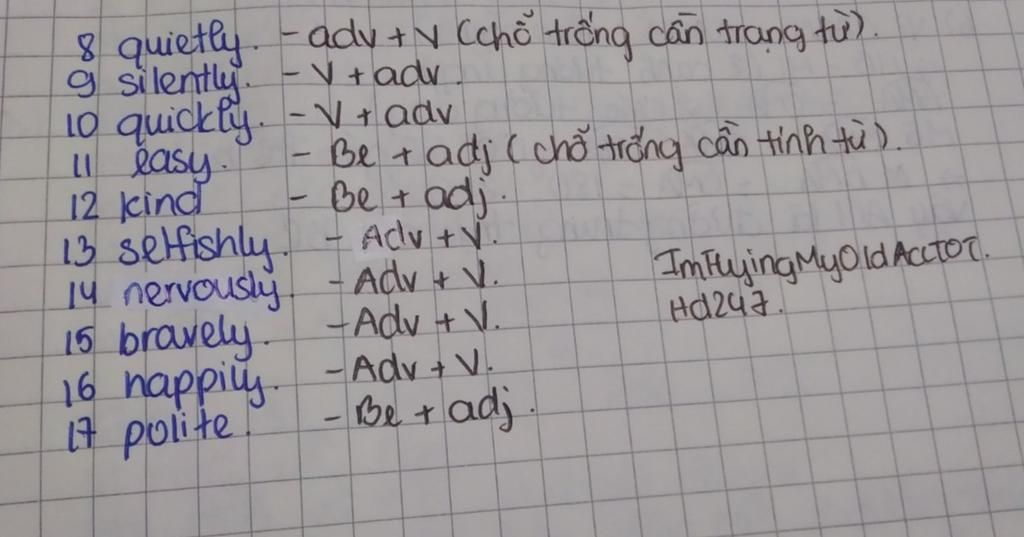 8 quietly. - adv + V (chỗ trống cần trạng từ).
9 silently. - V + adv
10 quickly. - V + adv
11 easy. - Be + adj (chỗ trống cần tính từ).
12 kind - Be + adj.
13 selfishly. - Adv + V.
14 nervously - Adv + V.
15 bravely. - Adv + V.
16 happily. - Adv + V.
17 polite. - Be + adj.
ImFlyingMyOldAcctoT.
Hd247.